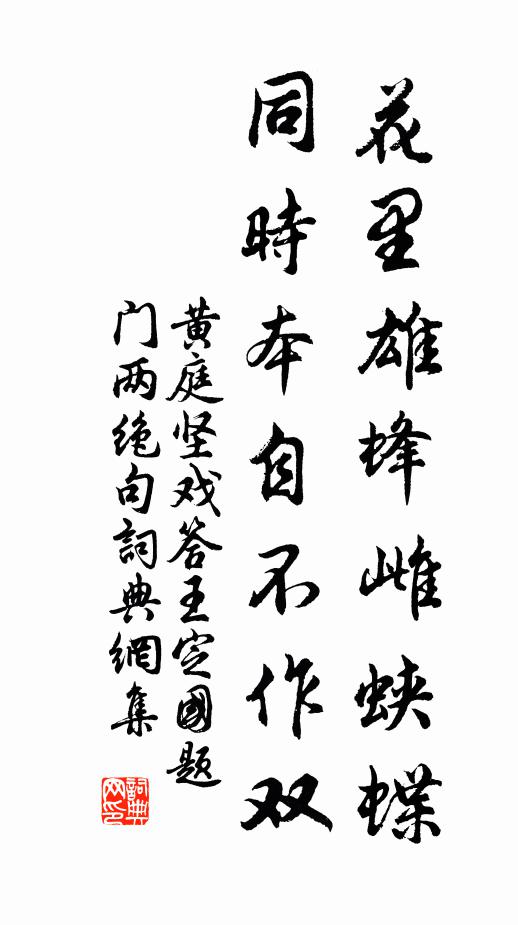 花里雄蜂雌蛱蝶
同時本自不作双
黄庭坚戏答王定國題
门两绝句詞典網集
詞典
网印